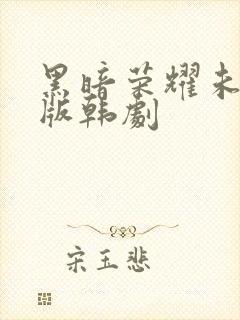 黑暗荣耀未
版韩剧
宋玉悲